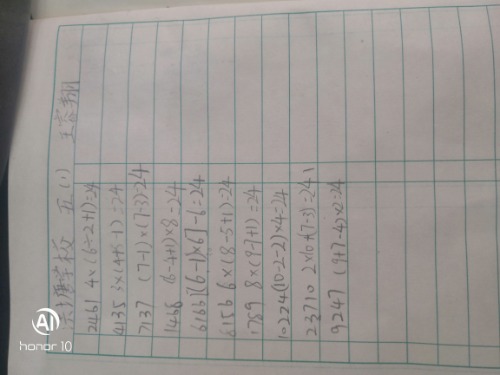 学校 五(1) 王
2461 4×(6÷2+1)=24
4135 3×(4+5-1)=24
7137 (7-1)×(7-3)=24
1468 (6-4+1)×8=24
6166 [(6-1)×6]-6=24
6156 6×(8-5+1)=24
1789 8×(9-7+1)=24
10224 (10-2-2)×4=24
23710 2×10+(7-3)=24
9247 (9+7-4)×2=24
AI
honor 10